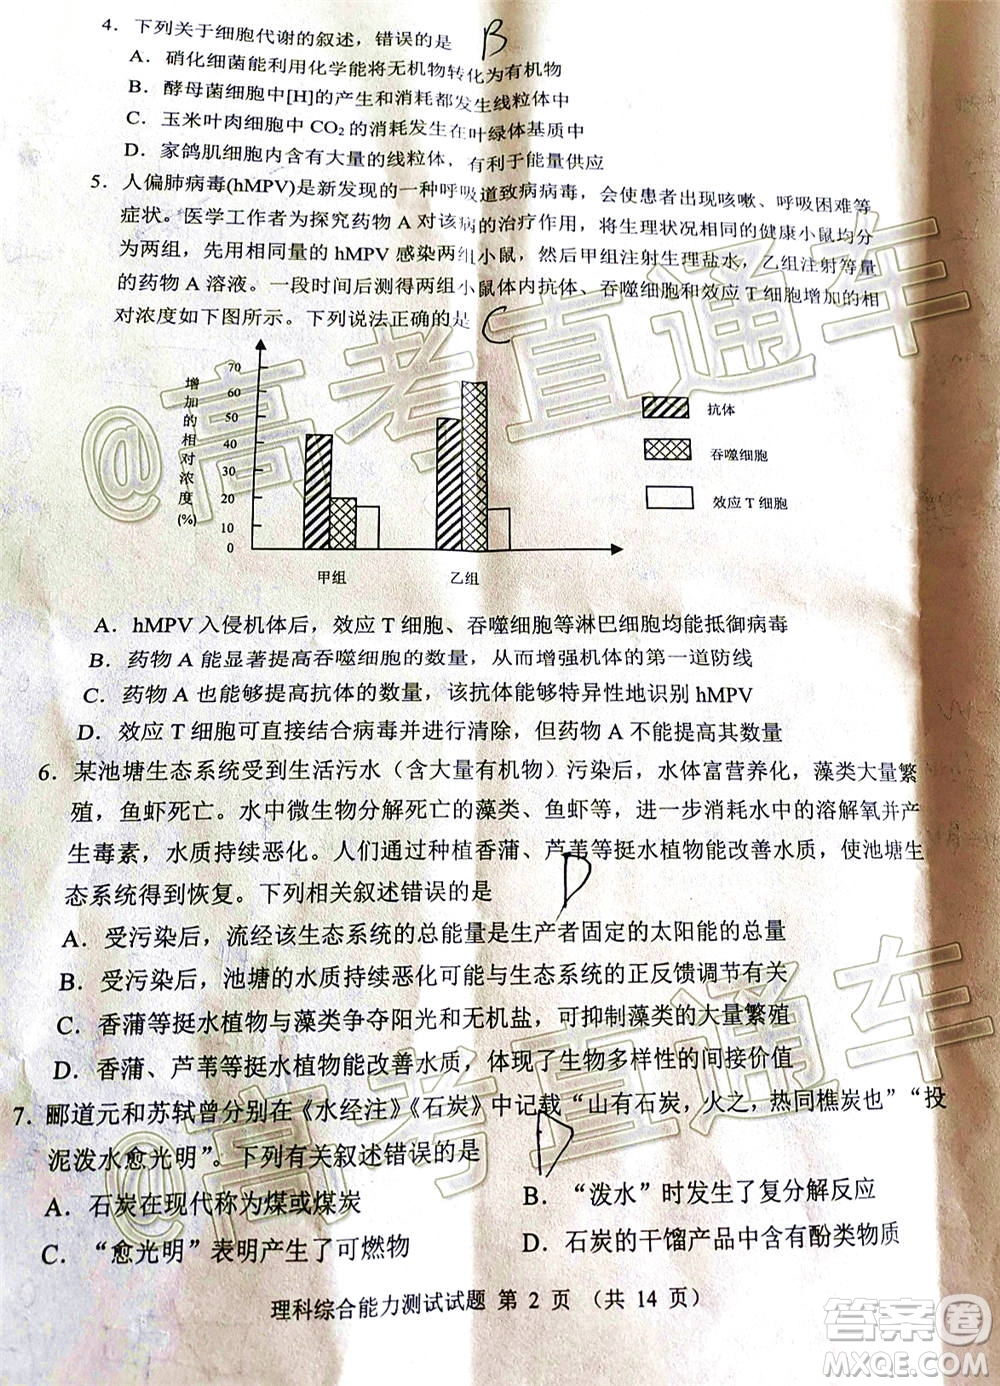 4．下列关于细胞代谢的叙述，错误的是 B
A．硝化细菌能利用化学能将无机物转化为有机物
B．酵母菌细胞中[H]的产生和消耗都发生线粒体中
C．玉米叶肉细胞中 CO₂的消耗发生在叶绿体基质中
D．家鸽肌细胞内含有大量的线粒体，有利于能量供应
5．人偏肺病毒(hMPV)是新发现的一种呼吸道致病病毒，会使患者出现咳嗽、呼吸困难等
症状。医学工作者为探究药物 A 对该病的治疗作用，将生理状况相同的健康小鼠均分
为两组，先用相同量的 hMPV 感染两组小鼠，然后甲组注射生理盐水，乙组注射等量
的药物 A 溶液。一段时间后测得两组小鼠体内抗体、吞噬细胞和效应 T 细胞增加的相
对浓度如下图所示。下列说法正确的是 C
增加的相对浓度(%)
70
60
50
40
30
20
10
0
甲组
乙组
抗体
吞噬细胞
效应 T 细胞
A．hMPV 入侵机体后，效应 T 细胞、吞噬细胞等淋巴细胞均能抵御病毒
B．药物 A 能显著提高吞噬细胞的数量，从而增强机体的第一道防线
C．药物 A 也能够提高抗体的数量，该抗体能够特异性地识别 hMPV
D．效应 T 细胞可直接结合病毒并进行清除，但药物 A 未能提高其数量
6．某池塘生态系统受到生活污水（含大量有机物）污染后，水体富营养化，藻类大量繁
殖，鱼虾死亡。水中微生物分解死亡的藻类、鱼虾等，进一步消耗水中的溶解氧并产
生毒素，水质持续恶化。人们通过种植香蒲、芦苇等挺水植物能改善水质，使池塘生
态系统得到恢复。下列相关叙述错误的是 D
A．受污染后，流经该生态系统的总能量是生产者固定的太阳能的总量
B．受污染后，池塘的水质持续恶化可能与生态系统的正反馈调节有关
C．香蒲等挺水植物与藻类争夺阳光和无机盐，可抑制藻类的大量繁殖
D．香蒲、芦苇等挺水植物能改善水质，体现了生物多样性的间接价值
7．郦道元和苏轼曾分别在《水经注》《石炭》中记载“山有石炭，火之，热同樵炭也”“投
泥泼水愈光明”。下列有关叙述错误的是 D
A．石炭在现代称为煤或煤炭
B．“泼水”时发生了复分解反应
C．“愈光明”表明产生了可燃物
D．石炭的干馏产品中含有酚类物质
理科综合能力测试试题 第 2 页 （共 14 页）
@高考直通车
@高考直通车
答案圈
MXQE.COM